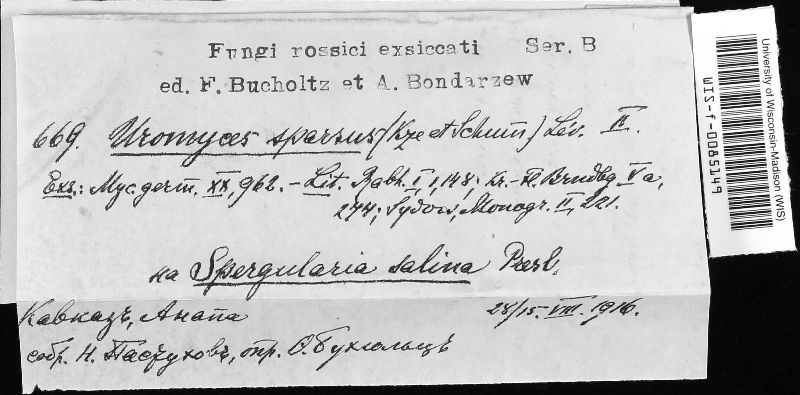 Fungi rossici exsiccati Ser. B
ed. F. Bucholtz et A. Bondarzew
669. Uromyces sparsus (Kze et Schum) Lév. II.
Exs.: Myc. germ. XX, 962. – Lit. Rabh. I, 1, 148; Kr.-Fl. Brndbg Va,
274; Sydow, Monogr. II, 221.
на Spergularia salina Presl.
Кавказъ, Анапа 28/15. VIII. 1916.
собр. Н. Пастуховъ, опр. Ѳ. Бухгольцъ
University of Wisconsin-Madison (WIS)
WIS-f-0085149